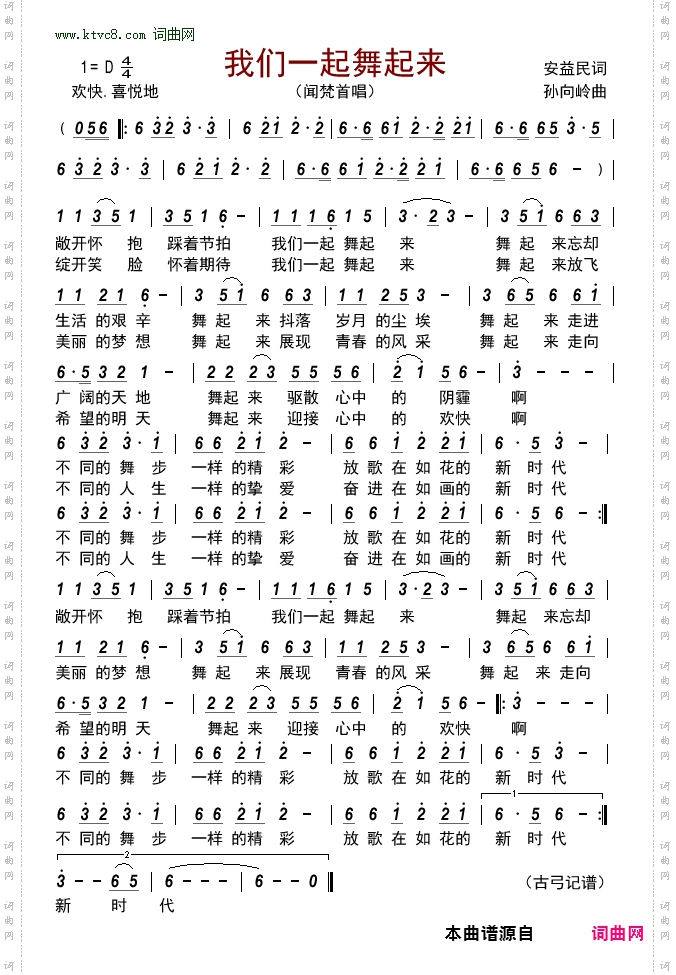 www.ktvc8.com 词曲网
我们一起舞起来
1= D 4/4
安益民词
欢快.喜悦地
（闻梵首唱）
孙向岭曲
( 056 ‖: 6 32 3·3 | 6 21 2·2 | 6·6 61 2·2 21 | 6·6 65 3·5 |
6 32 3·3 | 6 21 2·2 | 6·6 61 2·2 21 | 6·6 656 - ) |
11 351 | 3516 - | 1116 15 | 3·23 - | 351 663 |
敞开怀 抱 踩着节拍 我们一起 舞起 来 舞 起 来忘却
绽开笑 脸 怀着期待 我们一起 舞起 来 舞 起 来放飞
11 21 6 - | 3 51 6 63 | 11 253 - | 3 65 6 61 |
生活 的艰 辛 舞 起 来 抖落 岁月 的尘 埃 舞 起 来 走进
美丽 的梦 想 舞 起 来 展现 青春 的风 采 舞 起 来 走向
6·5 32 1 - | 22 2 23 55 56 | 2 1 56 - | 3 - - - |
广 阔的天 地 舞起 来 驱散 心中 的 阴霾 啊
希 望的明 天 舞起 来 迎接 心中 的 欢快 啊
6 32 3·1 | 66 21 2 - | 6 61 2 21 | 6·53 - |
不 同的 舞 步 一样 的精 彩 放 歌 在 如 花的 新 时 代
不 同的 人 生 一样 的挚 爱 奋 进 在 如 画的 新 时 代
6 32 3·1 | 66 21 2 - | 6 61 2 21 | 6·56 - :‖
不 同的 舞 步 一样 的精 彩 放 歌 在 如 花的 新 时 代
不 同的 人 生 一样 的挚 爱 奋 进 在 如 画的 新 时 代
11 351 | 3516 - | 1116 15 | 3·23 - | 351 663 |
敞开怀 抱 踩着节拍 我们一起 舞起 来 舞起 来忘却
11 21 6 - | 3 51 6 63 | 11 253 - | 3 65 6 61 |
美丽 的梦 想 舞 起 来 展现 青春 的风 采 舞 起 来走向
6·5 32 1 - | 22 2 23 55 56 | 2 1 56 - ‖: 3 - - - |
希 望的明 天 舞起 来 迎接 心中 的 欢快 啊
6 32 3·1 | 66 21 2 - | 6 61 2 21 | 6·53 - |
不 同的 舞 步 一样 的精 彩 放 歌 在 如 花的 新 时 代
1
6 32 3·1 | 66 21 2 - | 6 61 2 21 | 6·56 - :‖
不 同的 舞 步 一样 的精 彩 放 歌 在 如 花的 新 时 代
2
3 - - 65 | 6 - - - | 6 - - 0 ‖
（古弓记谱）
新 时 代
本曲谱源自 词曲网